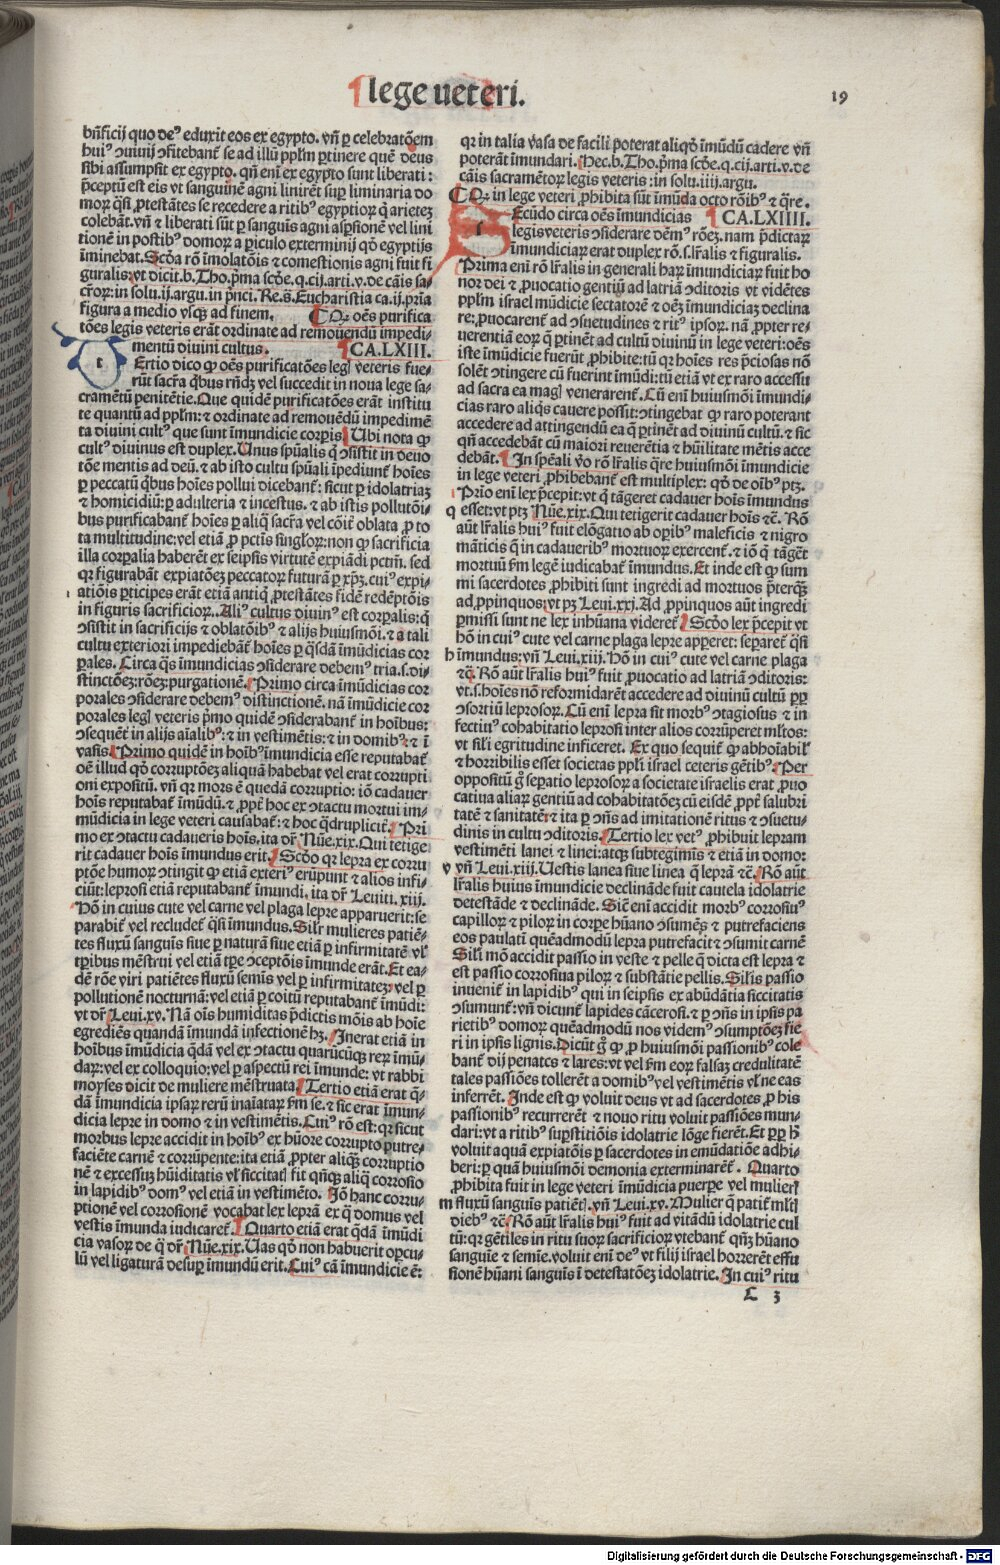 lege veteri.
19
bn̄ficij quo deꝰ eduxit eos ex egypto. vn̄ ꝑ celebratōem
huiꝰ ↄuiuij ↄfitebant̄ se ad illū ppl̄m ꝑtinere quē deus
sibi assumpsit ex egypto. qn̄ em̄ ex egypto sunt liberati:
p̄ceptū est eis vt sanguinē agni linirēt suꝑ liminaria do
moꝝ q̄si ꝓtestātes se recedere a ritibꝰ egyptioꝝ q̄ arietez
colebāt. vn̄ ⁊ liberati sūt ꝑ sanguis agni aspsionē vel lini
tionē in postibꝰ domoꝝ a ꝑiculo exterminij qd̄ egyptijs
iminebat. Scd̄a rō īmolatōis ⁊ comestionis agni fuit fi
guralis: vt dicit .b. Tho. p̄ma scd̄e. q. cij. arti. v. de cāis sa-
cr̄oꝝ: in solu. ij. argu. in pn̄ci. Re. s. Eucharistia ca. ij. pr̄ia
figura a medio vsqꝫ ad finem. ¶ Qꝫ oēs purifica
tōes legis veteris erāt ordinate ad remouendū impedi-
mentū diuini cultus. ¶ CA.LXIII.
Ertio dico ꝙ oēs purificatōes legꝭ veteris fue-
rūt sacr̄a q̄bus rn̄dꝫ vel succedit in noua lege sa-
cramētū penitētie. Que quidē purificatōes erāt institu
te quantū ad ppl̄m: ⁊ ordinate ad remouēdū impedimē
ta diuini cultꝰ que sunt īmundicie corpis. Ubi nota ꝙ
cultꝰ diuinus est duplex. Unus spūalis q̄ ↄsistit in deuo
tōe mentis ad deū. ⁊ ab isto cultu spūali īpediunt̄ hoīes
ꝑ peccatū q̄bus hoīes pollui dicebant̄: sicut ꝑ idolatriaꝫ
⁊ homicidiū: ꝑ adulteria ⁊ incestus. ⁊ ab istis pollutōi-
bus purificabant̄ hoīes ꝑ aliq̄ sacr̄a vel cōiē oblata ꝓ to
ta multitudine: vel etiā ꝓ pctīs singl̄oꝝ: non ꝙ sacrificia
illa corꝑalia haberēt ex seipsis virtutē expiādi pctm̄. sed
qꝛ figurabāt expiatōeꝫ peccatoꝝ futurā ꝑ xp̄ꝫ. cuiꝰ expi-
atiōis ꝑticipes erāt etiā antiq̄ ꝓtestātes fidē redēptōis
in figuris sacrificioꝝ. Aliꝰ cultus diuinꝰ est corꝑalis: q̄
ↄsistit in sacrificijs ⁊ oblatōibꝰ ⁊ alijs huiusmōi. ⁊ a tali
cultu exteriori impediebāt̄ hoīes ꝑ q̄sdā īmūdicias cor
ꝑales. Circa q̄s īmundicias ↄsiderare debemꝰ tria. s. di-
stinctōeꝫ: rōeꝫ: purgationē. Primo circa imūdicias cor
porales ↄsiderare debemꝰ distinctionē. nā īmūdicie cor
porales legꝭ veteris p̄mo quidē ↄsiderabant̄ in hoībus:
ↄsequēt̄ in alijs aīalibꝰ: ⁊ in vestimētis: ⁊ in domibꝰ: ⁊ ī
vasis. Primo quidē in hoībꝰ īmundicia esse reputabat̄
oē illud qd̄ corruptōeꝫ aliquā habebat vel erat corrupti
oni expositū. vn̄ qꝛ mors ē quedā corruptio: iō cadauer
hoīs reputabat̄ īmūdū. ⁊ ꝓpt̄ hoc ex ↄtactu mortui im-
mūdicia in lege veteri causabat̄: ⁊ hoc q̄druplicit̄. Pri
mo ex ↄtactu cadaueris hoīs, ita dr̄ Nūe. xix. Qui tetige
rit cadauer hoīs īmundus erit. Scd̄o qꝛ lepra ex corru
ptōe humoꝝ ↄtingit ꝙ etiā exteriꝰ erūpunt ⁊ alios infi-
ciūt: leprosi etiā reputabant̄ īmundi. ita dr̄ Leuiti. xiij.
Hō in cuius cute vel carne vel plaga lepre apparuerit: se
parabit̄ vel recludet̄ q̄si īmundus. Silr̄ mulieres patiē-
tes fluxū sanguīs siue ꝑ naturā siue etiā ꝑ infirmitatē vl̄
tꝑibus mēstrui vel etiā tꝑe ↄceptōis imunde erāt. Et ea-
dē rōe viri patiētes fluxū semīs vel ꝑ infirmitateꝫ: vel ꝑ
pollutionē nocturnā: vel etiā ꝑ coitū reputabant̄ īmūdi:
vt dr̄ Leui. xv. Nā oīs humiditas p̄dictis mōis ab hoīe
egrediēs quandā īmundā infectionē hꝫ. Inerat etiā in
hoībus īmūdicia q̄dā vel ex ↄtactu quarūcūqꝫ reꝝ īmū-
daꝝ: vel ex colloquio: vel ꝑ aspectū rei īmunde: vt rabbi
moyses dicit de muliere mēstruata. Tertio etiā erat q̄-
dā īmundicia ipsaꝝ rerū inaīataꝝ ẜm se. ⁊ sic erat īmun-
dicia lepre in domo ⁊ in vestimētis. Cuiꝰ rō est: qꝛ sicut
morbus lepre accidit in hoībꝰ ex hūore corrupto putre-
faciēte carnē ⁊ corrūpente: ita etiā ꝓpter aliq̄ꝫ corruptio
nē ⁊ excessuꝫ hūiditatis vl̄ siccitatꝭ fit qn̄qꝫ aliq̄ corrosio
in lapidibꝰ domꝰ vel etiā in vestimēto. Iō hanc corru-
ptionē vel corrosionē vocabat lex leprā ex q̄ domus vel
vestis īmunda iudicaret̄. Quarto etiā erat q̄dā īmūdi
cia vasoꝝ de q̄ dr̄ Nūe. xix. Uas qd̄ non habuerit oꝑcu-
lū vel ligaturā desuꝑ īmundū erit. Cuiꝰ cā īmundicie ē:
qꝛ in talia vasa de facili poterat aliqd̄ īmūdū cadere vn̄
poterāt īmundari. Hec .b. Tho. p̄ma scd̄e. q. cij. arti. v. de
cāis sacramētoꝝ legis veteris: in solu. iiij. argu.
¶ Qꝫ in lege veteri ꝓhibita sūt īmūda octo rōibꝰ ⁊ q̄re.
Ecūdo circa oēs īmundicias ¶ CA.LXIIII.
legis veteris ↄsiderare dēmꝰ rōeꝫ. nam p̄dictaꝝ
īmundiciaꝝ erat duplex rō. s. lr̄alis ⁊ figuralis.
Prima em̄ rō lr̄alis in generali haꝝ īmundiciaꝝ fuit ho
nor dei ⁊ ꝓuocatio gentiū ad latriā ↄditoris vt vidētes
ppl̄m israel mūdicie sectatorē ⁊ oēꝫ īmundiciaꝫ declina
re: ꝓuocarent̄ ad ↄsuetudines ⁊ ritꝰ ipsoꝝ. nā ꝓpter re-
uerentiā eoꝝ q̄ ꝑtinēt ad cultū diuinū in lege veteri: oēs
iste īmūdicie fuerūt ꝓhibite: tū qꝛ hoīes res p̄ciosas nō
solēt ↄtingere cū fuerint īmūdi: tū etiā vt ex raro accessu
ad sacra ea magꝭ venerarent̄. Cū em̄ huiusmōi īmundi-
cias raro aliqͥs cauere possit: ↄtingebat ꝙ raro poterant
accedere ad attingendū ea q̄ ꝑtinēt ad diuinū cultū. ⁊ sic
qn̄ accedebāt cū maiori reuerētia ⁊ hūilitate mētis acce
debāt. In spēali v̄o rō lr̄alis q̄re huiusmōi īmundicie
in lege veteri ꝓhibebant̄ est multiplex: qd̄ de oībꝰ ptꝫ.
Prīo em̄ lex p̄cepit: vt q̄ tāgeret cadauer hoīs īmundus
esset: vt ptꝫ Nūe. xix. Qui tetigerit cadauer hoīs ⁊c̄. Rō
aūt lr̄alis huiꝰ fuit elōgatio ab oꝑibꝰ maleficis ⁊ nigro
māticis q̄ in cadaueribꝰ mortuoꝝ exercent̄. ⁊ iō q̄ tāgēt
mortuū ẜm legē iudicabat̄ īmundus. Et inde est ꝙ sum
mi sacerdotes ꝓhibiti sunt ingredi ad mortuos p̄terqꝫ
ad ꝓpinquos: vt pꝫ Leui. xxj. Ad ꝓpinquos aūt ingredi
ꝑmissi sunt ne lex inhūana videret̄. Scd̄o lex p̄cepit vt
hō in cuiꝰ cute vel carne plaga lepre apperet: seꝑaret̄ q̄si
īmundus: vn̄ Leui. xiij. Hō in cuiꝰ cute vel carne plaga
⁊c̄. Rō aūt lr̄alis huiꝰ fuit ꝓuocatio ad latriā ↄditoris:
vt. s. hoīes nō reformidarēt accedere ad diuinū cultū ꝓꝑ
ↄsortiū leprosoꝝ. Cū em̄ lepra sit morbꝰ ↄtagiosus ⁊ in
fectiuꝰ cohabitatio leprosi inter alios corrūperet ml̄tos:
vt sil̄i egritudine inficeret. Ex quo sequit̄ ꝙ abhoīabilꝭ
⁊ horribilis esset societas ppl̄i israel ceteris gētibꝰ. Per
oppositū g̊ seꝑatio leprosoꝝ a societate israelis erat ꝓuo
catiua aliaꝝ gentiū ad cohabitatōeꝫ cū eisdē ꝓpt̄ salubri
tatē ⁊ sanitatē: ⁊ ita ꝑ ↄn̄s ad imitationē ritus ⁊ ↄsuetu-
dinis in cultu ↄditoris. Tertio lex vetꝰ ꝓhibuit lepram
vestimēti lanei ⁊ linei: atqꝫ subtegimīs ⁊ etiā in domo:
vn̄ Leui. xiij. Uestis lanea siue linea q̄ leprā ⁊c̄. Rō aūt
lr̄alis huius īmundicie declināde fuit cautela idolatrie
detestāde ⁊ declināde. Sic em̄ accidit morbꝰ corrosiuꝰ
capilloꝝ ⁊ piloꝝ in corꝑe hūano ↄsumēs ⁊ putrefaciens
eos paulati quēadmodū lepra putrefacit ⁊ ↄsumit carnē
Sil̄i mō accidit passio in veste ⁊ pelle q̄ dicta est lepra ⁊
est passio corrosiua piloꝝ ⁊ substātie pellis. Sil̄is passio
inuenit̄ in lapidibꝰ qui in seipsis ex abūdātia siccitatis
ↄsumunt̄: vn̄ dicunt̄ lapides cācerosi. ⁊ ꝑ ↄn̄s in ipsis pa
rietibꝰ domoꝝ quēadmodū nos videmꝰ ↄsumptōeꝫ fie
ri in ipsis lignis. Dicūt g̊ ꝙ ꝓ huiusmōi passionibꝰ cole
bant̄ dij penates ⁊ lares: vt vel ẜm eoꝝ falsaꝫ credulitatē
tales passiōes tollerēt a domibꝰ vel vestimētis vl̄ ne eas
inferrēt. Inde est ꝙ voluit deus vt ad sacerdotes ꝓ his
passionibꝰ recurrerēt ⁊ nouo ritu voluit passiōes mun-
dari: vt a ritibꝰ suꝑstitiōis idolatrie lōge fierēt. Et ꝓꝑ h̄
voluit aquā expiatōis ꝑ sacerdotes in emūdatiōe adhi-
beri: ꝑ quā huiusmōi demonia exterminarēt̄. Quarto
ꝓhibita fuit in lege veteri īmūdicia puerꝑe vel mulierꝭ
fluxū sanguīs patiētꝭ. vn̄ Leui. xv. Mulier q̄ patit̄ ml̄tꝭ
diebꝰ ⁊c̄. Rō aūt lr̄alis huiꝰ fuit ad vitādū idolatrie cul
tū: qꝛ gētiles in ritu suoꝝ sacrificioꝝ vtebant̄ qn̄qꝫ hūano
sanguīe ⁊ semīe. voluit em̄ deꝰ vt filij israel horrerēt effu
sionē hūani sanguīs ī detestatōeꝫ idolatrie. In cuiꝰ ritu
C 3
Digitalisierung gefördert durch die Deutsche Forschungsgemeinschaft - DFG